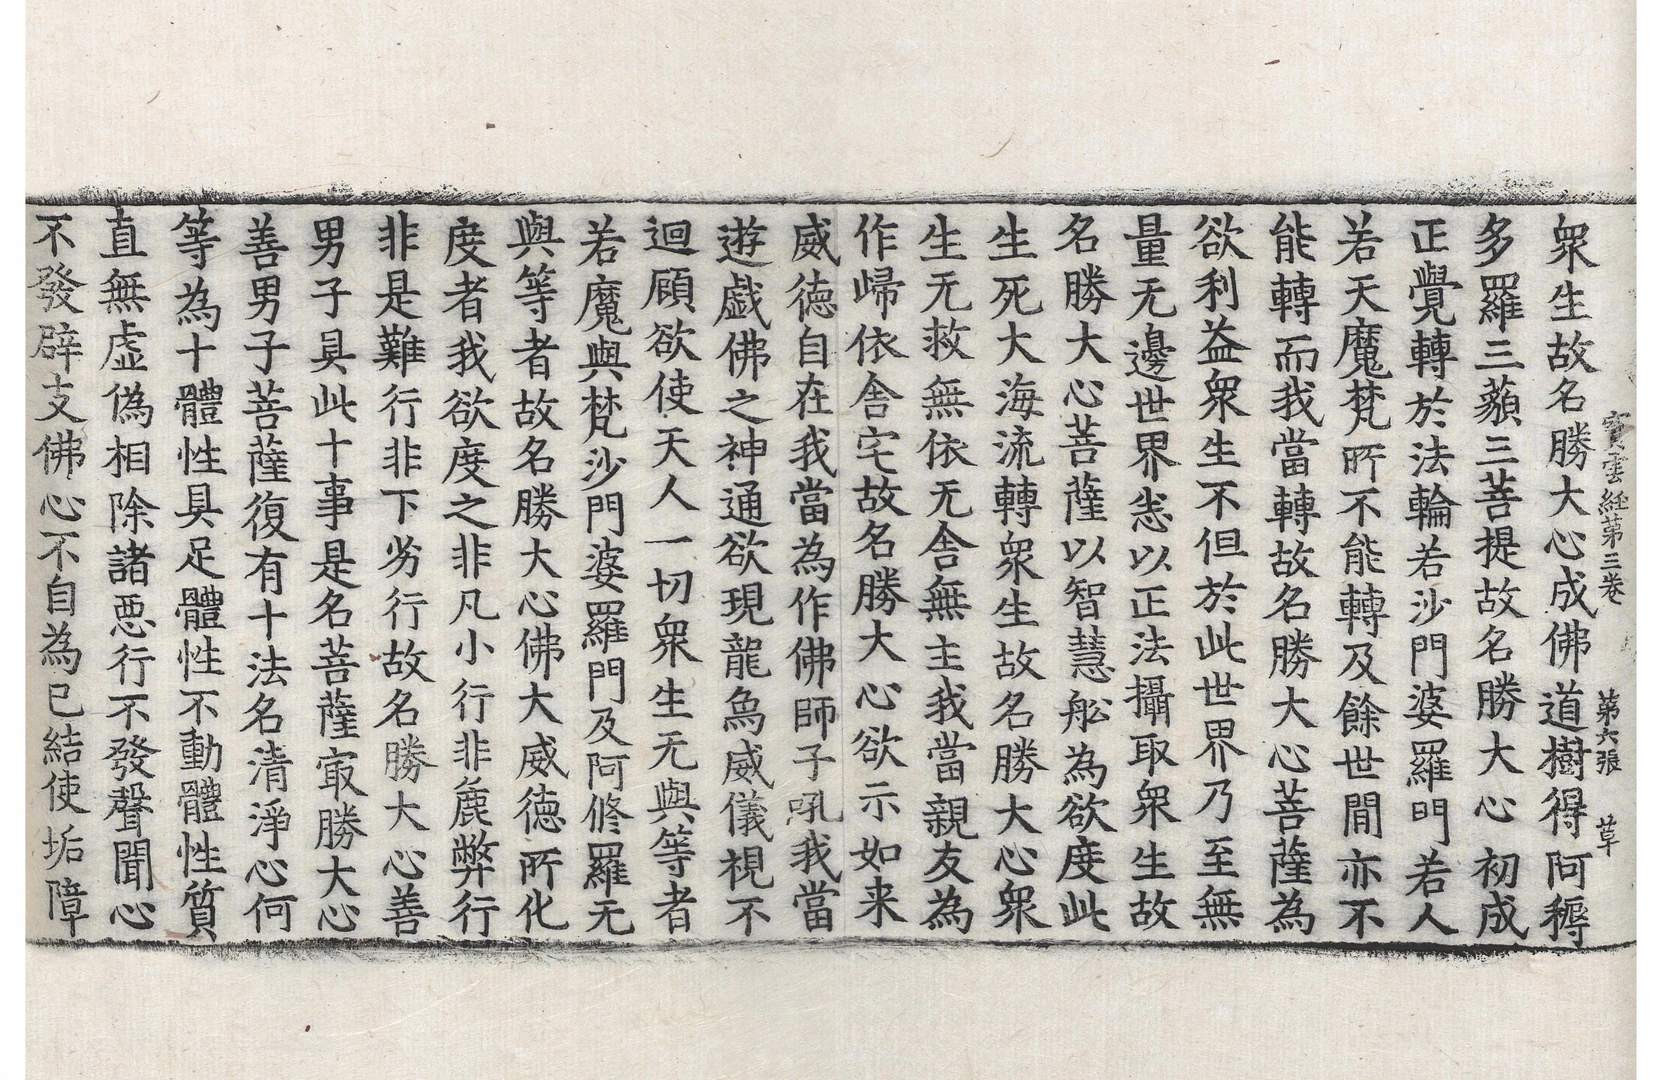 寳雲経第三卷　第六張　草
衆生故名勝大心成佛道樹得阿耨
多羅三藐三菩提故名勝大心初成
正覺轉於法輪若沙門婆羅門若人
若天魔梵所不能轉及餘世間亦不
能轉而我當轉故名勝大心菩薩為
欲利益衆生不但於此世界乃至無
量无邊世界悉以正法攝取衆生故
名勝大心菩薩以智慧舩為欲度此
生死大海流轉衆生故名勝大心衆
生无救無依无舍無主我當親友為
作歸依舍宅故名勝大心欲示如来
威德自在我當為作佛師子吼我當
遊戯佛之神通欲現龍烏威儀視不
迴顧欲使天人一切衆生无與等者
若魔與梵沙門婆羅門及阿修羅无
與等者故名勝大心佛大威德所化
度者我欲度之非凡小行非麁弊行
非是難行非下劣行故名勝大心善
男子具此十事是名菩薩㝡勝大心
善男子菩薩復有十法名清淨心何
等為十體性具足體性不動體性質
直無虛偽相除諸惡行不發聲聞心
不發辟支佛心不自為已結使垢障